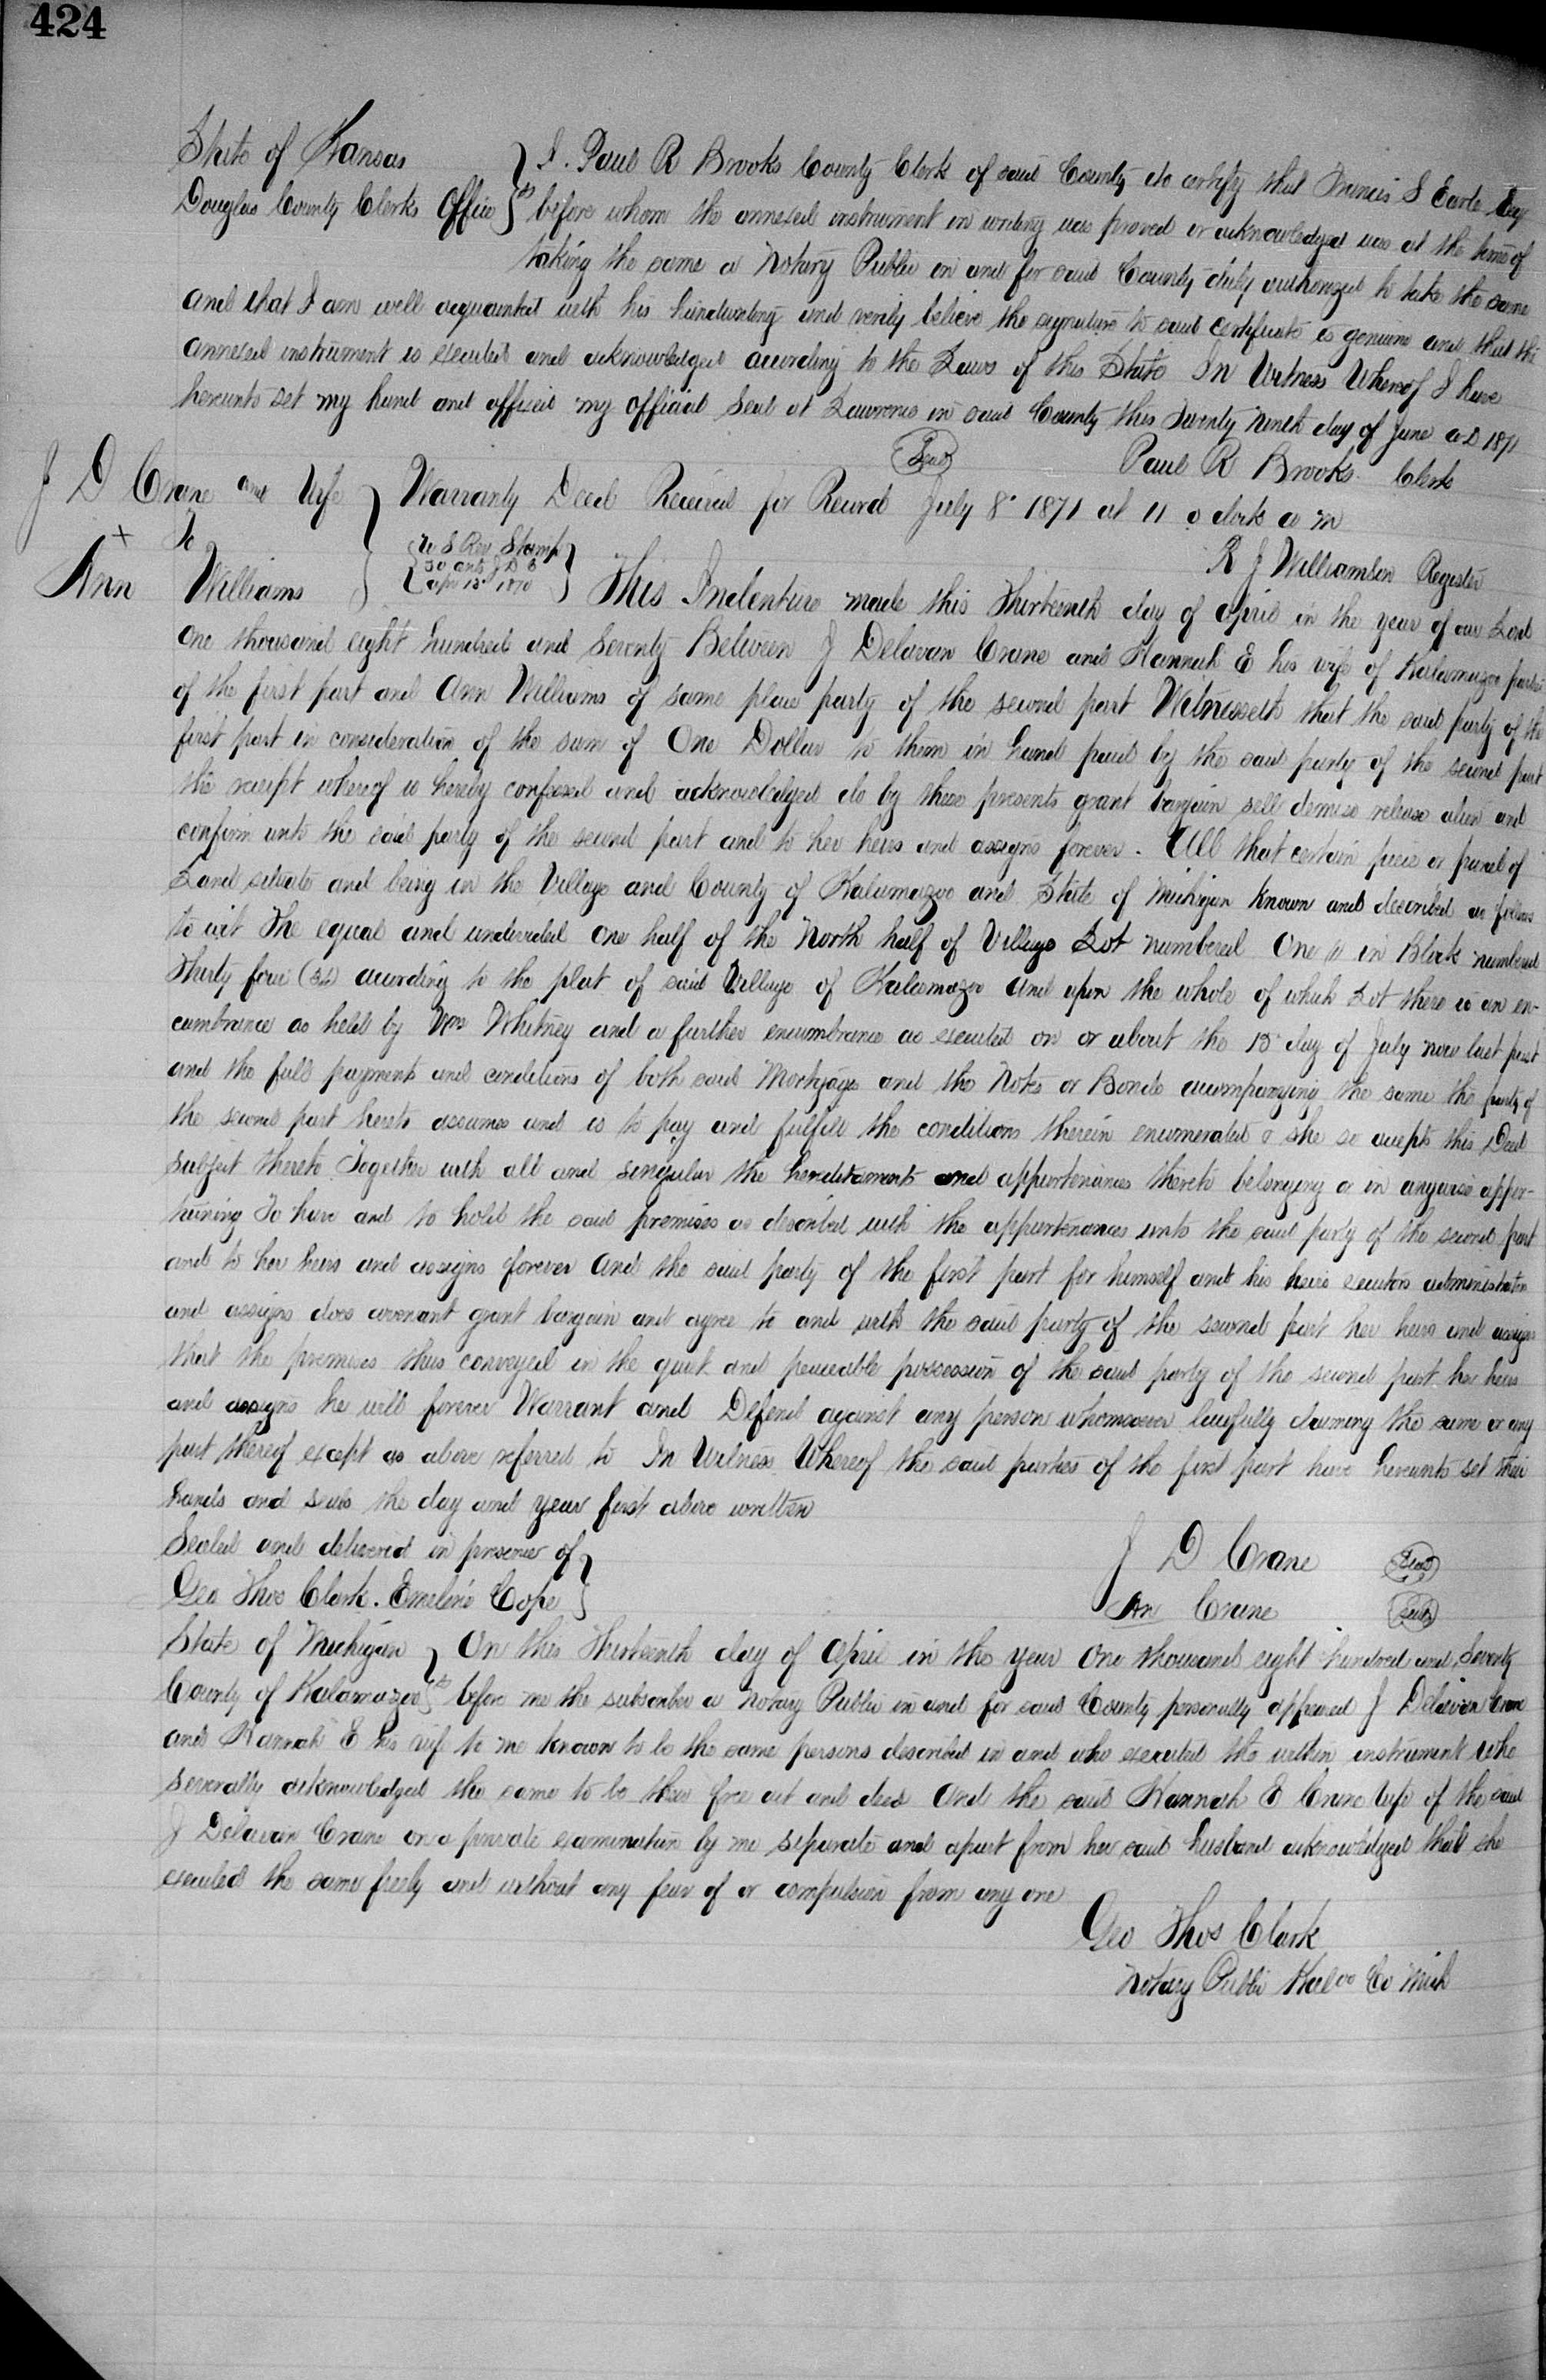 424
State of Kansas } I. Paul R Brooks County Clerk of said County do certify that Francis S Earle Esq
Douglas County Clerks Office } ss before whom the annexed instrument in writing was proved or acknowledged was at the time of
taking the same a Notary Public in and for said County duly authorized to take the same
and that I am well acquainted with his handwriting and verily believe the signature to said certificate is genuine and that the
annexed instrument is executed and acknowledged according to the Laws of this State In Witness Whereof I have
hereunto set my hand and affixed my official Seal at Lawrence in said County this Twenty Ninth day of June AD 1871
Seal Paul R Brooks Clerk
J D Crane and Wife } Warranty Deed Received for Record July 8" 1871 at 11 o clock a m
To
R J Williamson Register
Ann Williams } { U S Rev Stamp 50 cts J D C Apr 13" 1870 } This Indenture made this Thirteenth day of April in the year of our Lord
One thousand eight hundred and Seventy Between J Delavan Crane and Hannah E his wife of Kalamazoo parties
of the first part and Ann Williams of same place party of the second part Witnesseth that the said party of the
first part in consideration of the sum of One Dollar to them in hand paid by the said party of the second part
the receipt whereof is hereby confessed and acknowledged do by these presents grant bargain sell demise release alien and
confirm unto the said party of the second part and to her heirs and assigns forever. All that certain piece or parcel of
Land situate and being in the Village and County of Kalamazoo and State of Michigan known and described as follows
to wit The equal and undivided one half of the North half of Village Lot numbered One (1) in Block numbered
Thirty four (34) according to the plat of said Village of Kalamazoo and upon the whole of which Lot there is an en-
cumbrance as held by Wm Whitney and a further encumbrance as executed on or about the 13" day of July now last past
and the full payments and conditions of both said Mortgage and the Notes or Bonds accompanying the same the party of
the second part hereto assumes and is to pay and fulfill the conditions therein enumerated & she so accepts this Deed
subject thereto Together with all and singular the hereditaments and appurtenances thereto belonging or in anywise apper-
taining To have and to hold the said premises as described with the appurtenances unto the said party of the second part
and to her heirs and assigns forever And the said party of the first part for himself and his heirs executors administrators
and assigns does covenant grant bargain and agree to and with the said party of the second part her heirs and assigns
that the premises thus conveyed in the quiet and peaceable possession of the said party of the second part her heirs
and assigns he will forever Warrant and Defend against any person whomsoever lawfully claiming the same or any
part thereof except as above referred to In Witness Whereof the said parties of the first part have hereunto set their
hands and seals the day and year first above written
Sealed and delivered in presence of } J D Crane Seal
Geo Thos Clark. Emeline Cope } Crane Seal
State of Michigan } On this Thirteenth day of April in the year One thousand eight hundred and Seventy
County of Kalamazoo } ss before me the subscriber a Notary Public in and for said County personally appeared J Delavan Crane
and Hannah E his wife to me known to be the same persons described in and who executed the within instrument who
severally acknowledged the same to be their free act and deed And the said Hannah E Crane wife of the said
J Delavan Crane on a private examination by me separate and apart from her said husband acknowledged that she
executed the same freely and without any fear of or compulsion from any one
Geo Thos Clark
Notary Public Kal oo Co Mich